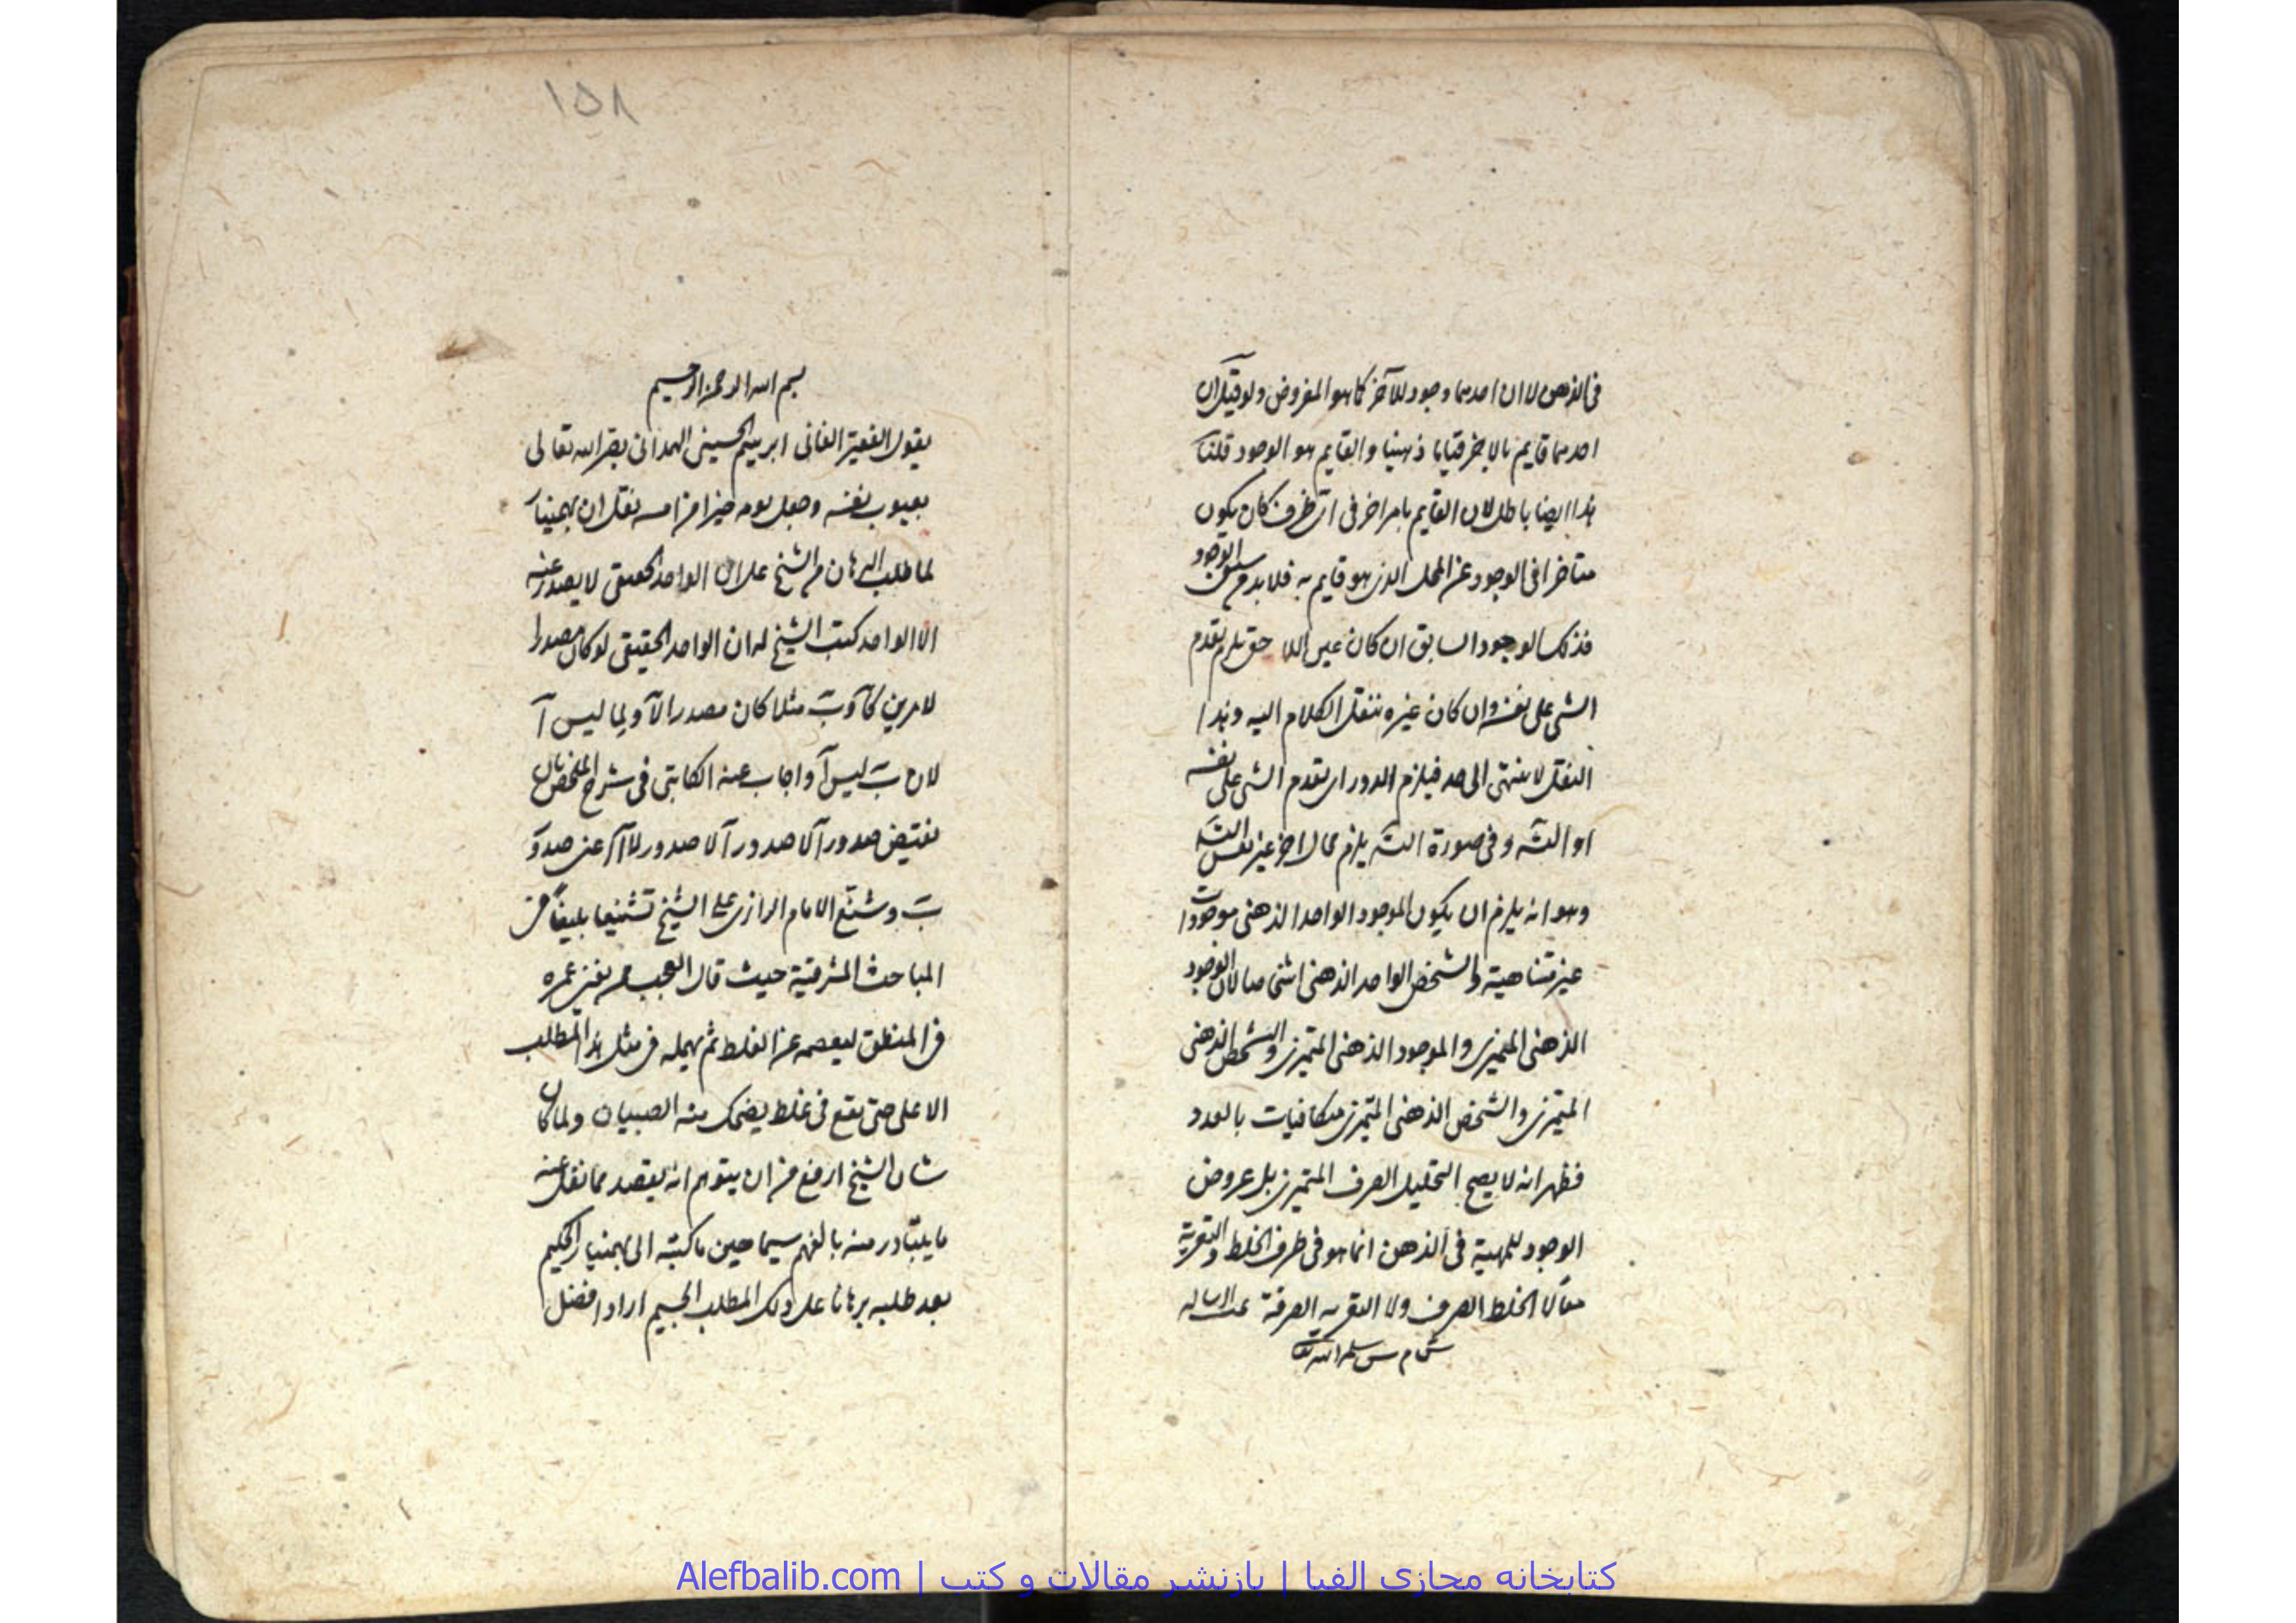 فی الذهن لا ان احدهما وجود للآخر کما هو المفروض ولو قیل ان
احدهما قایم بالاخر قیاما ذهنیا والقایم هو الوجود قلنا
هذا ایضا باطل لان القایم بامر اخر فی ای ظرف کان یکون
متاخرا فی الوجود عن المحل الذی هو قایم به فلا بد من سبق الوجود
فذلک الوجود السابق ان کان عین اللاحق یلزم تقدم
الشی علی نفسه وان کان غیره ننقل الکلام الیه وهذا
النقل لا ینتهی الی حد فیلزم الدور ای تقدم الشی علی نفسه
او التسه وفی صورة التسه یلزم محال اخر غیر نفس التسه
وهو انه یلزم ان یکون الموجود الواحد الذهنی موجودات
غیر متناهیة والشخص الواحد الذهنی اشخاصا لان الوجود
الذهنی المتمیزی والموجود الذهنی المتمیزی والتشخص الذهنی
المتمیزی والشخص الذهنی المتمیزی متکافیات بالعدد
فظهر انه لا یصح التحلیل الصرف المتمیزی بل عروض
الوجود للمهیة فی الذهن انما هو فی ظرف الخلط والتعریة
معا لا الخلط الصرف ولا التعریه الصرفة تمت الرساله
سلمه الله تعا
۱۵۸
بسم الله الرحمن الرحیم
یقول الفقیر الفانی ابرهیم الحسینی الهمدانی بصره الله تعالی
بعیوب نفسه وجعل یومه خیرا من امسه نقل ان بهمنیار
لما طلب البرهان من الشیخ علی ان الواحد الحقیقی لا یصدر عنه
الا الواحد کتب الشیخ له ان الواحد الحقیقی لو کان مصدرا
لامرین کآ وب مثلا کان مصدرا لآ ولما لیس آ
لان ب لیس آ واجاب عنه الکاتبی فی شرح الملخص بان
نقیض صدور آ لا صدور آ لا صدور لا آ عنی صدور
ب وشنع الامام الرازی علی الشیخ تشنیعا بلیغا فی
المباحث المشرقیة حیث قال العجب ممن یفنی عمره
فی المنطق لیعصمه عن الغلط ثم یهمله فی مثل هذا المطلب
الاعلی حتی یقع فی غلط یضحک منه الصبیان ولما کان
شان الشیخ ارفع من ان یتوهم انه یقصد مما نقل عنه
ما یتبادر منه بالفهم سیما حین ما کتبه الی بهمنیار الحکیم
بعد طلبه برهانا علی ذلک المطلب الجسیم اراد افضل
کتابخانه مجازی الفبا | بازنشر مقالات و کتب | Alefbalib.com